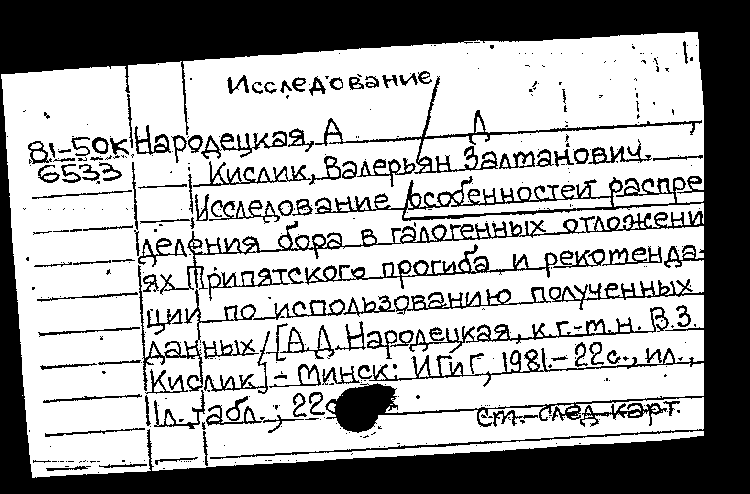 Исследование
81-50К Народецкая, А Д
6533 Кислик, Валерьян Залманович.
Исследование особенностей распре
деления бора в галогенных отложени
ях Припятского прогиба и рекоменда-
ции по использованию полученных
данных/[А.Д. Народецкая, к.г.-м.н. В.З.
Кислик]-Минск: ИГиГ, 1981.-22с., ил.,
1л. табл.; 22с
см. след. карт.